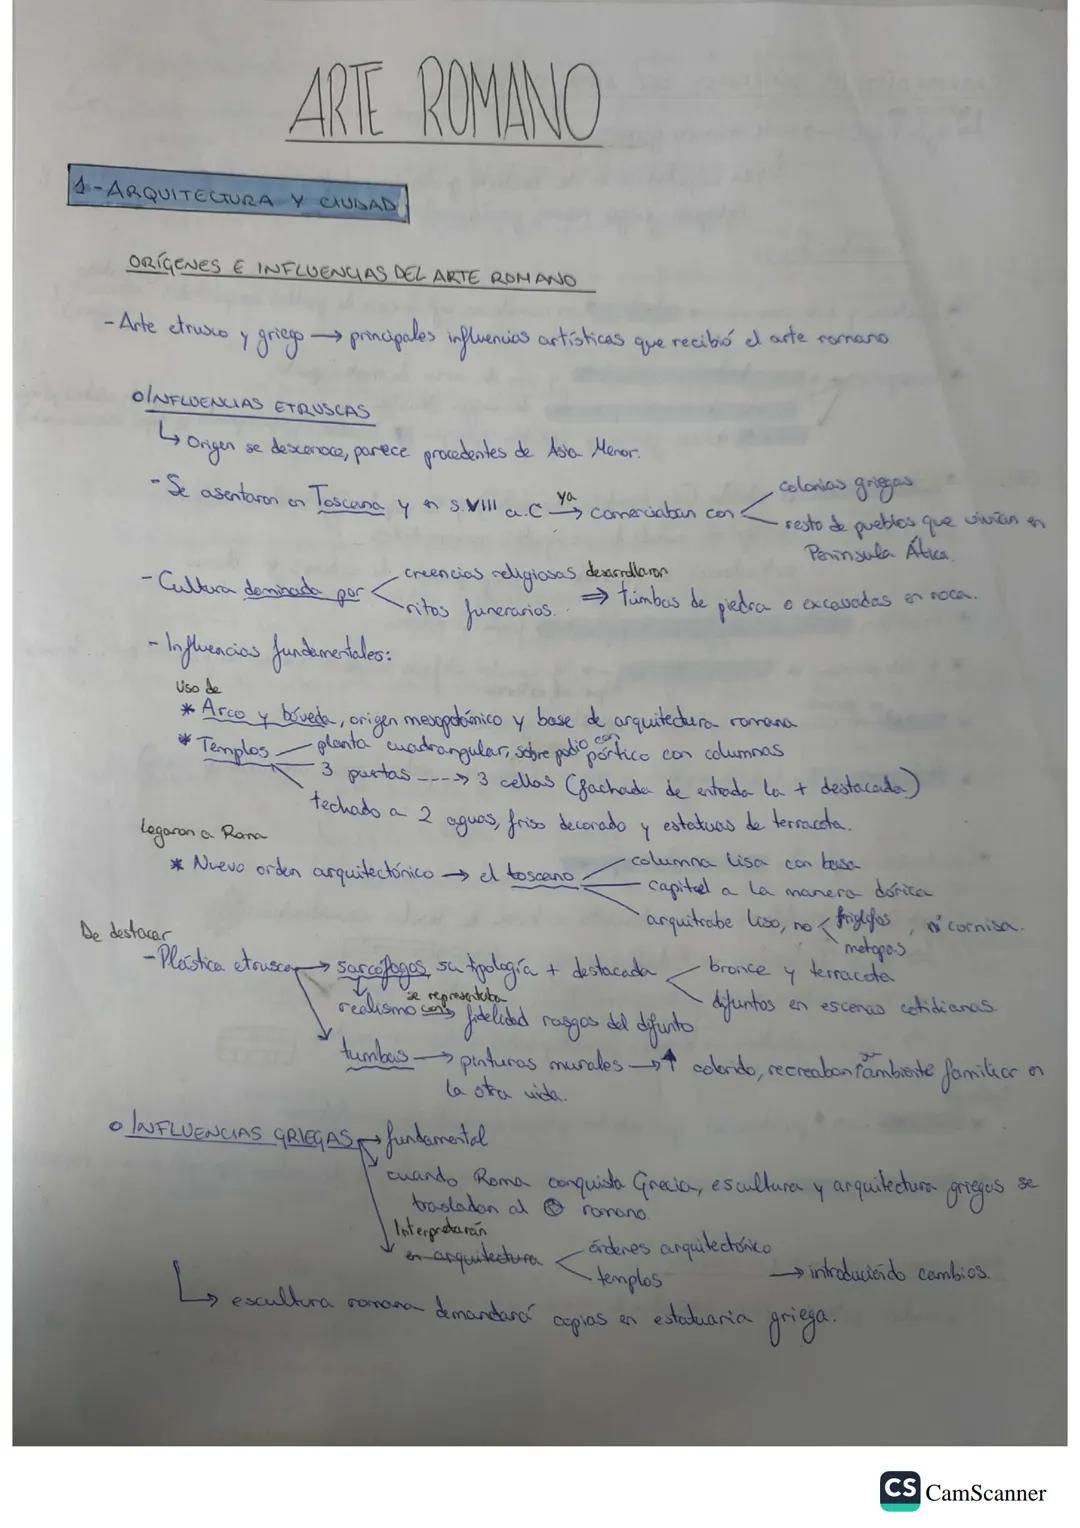 ARTE ROMANO
1-ARQUITECTURA Y CIUDAD
ORÍGENES E INFLUENCIAS DEL ARTE ROMANO
- Arte etrusco y griego → principales influencias artísticas que recibió el arte romano
o INFLUENCIAS ETRUSCAS
↳ Origen se desconoce, parece procedentes de Asia Menor.
- Se asentaron en Toscana y en s.VIII a.C ya → comerciaban con
colonias griegas
resto de pueblos que vivían en
Península Ática.
- Cultura dominada por
creencias religiosas desarrollaron
ritos funerarios. ⇒ tumbas de piedra o excavadas en roca.
- Influencias fundamentales:
Uso de
* Arco y bóveda, origen mesopotámico y base de arquitectura romana
* Templos planta cuadrangular, sobre podio con pórtico con columnas
3 puertas ----> 3 cellas (fachada de entrada la + destacada)
techado a 2 aguas, friso decorado y estatuas de terracota.
Legaron a Roma
* Nuevo orden arquitectónico → el toscano
columna lisa con basa
capitel a la manera dórica
arquitrabe liso, no friglifos, ni cornisa.
metopas
De destacar
- Plástica etrusca → sarcófagos, su tipología + destacada
bronce y terracota
difuntos en escenas cotidianas
se representaba
realismo con fidelidad rasgos del difunto
tumbas → pinturas murales → ↑ colorido, recreaban ambiente familiar en
la otra vida.
o INFLUENCIAS GRIEGAS → fundamental
cuando Roma conquista Grecia, escultura y arquitectura griegas se
trasladan al romano.
Interpretarán
en arquitectura
órdenes arquitectónico
templos → introduciendo cambios.
↳ escultura romana demandará copias en estatuaria griega.
CS CamScanner